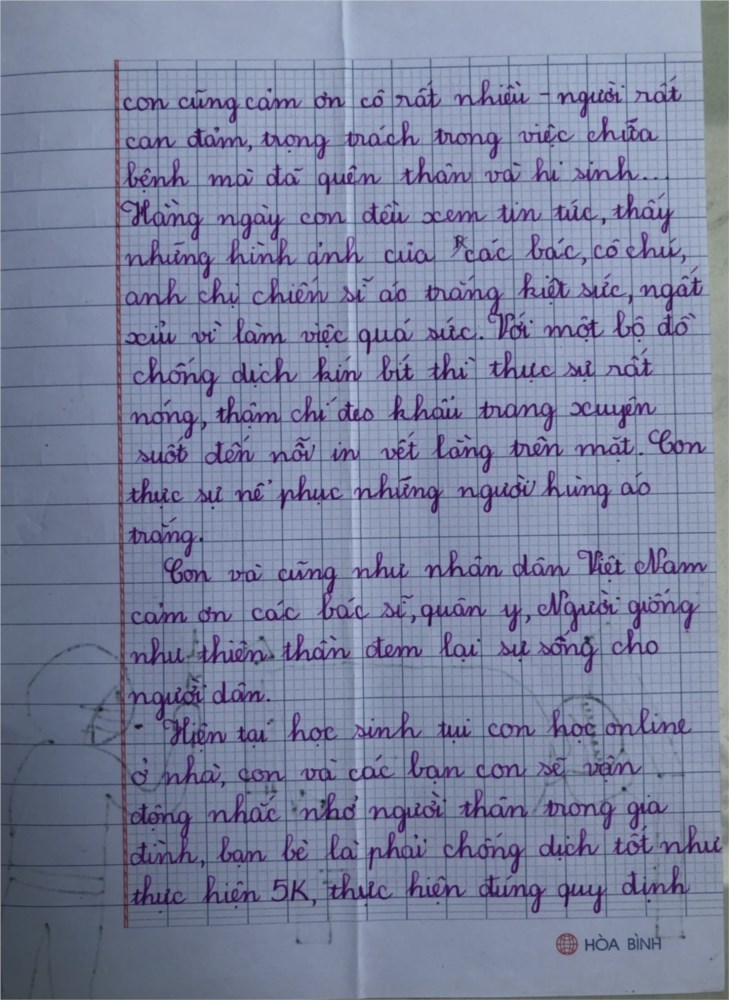 con cũng cảm ơn cô rất nhiều - người rất
can đảm, trọng trách trong việc chữa
bệnh mà đã quên thân và hi sinh...
Hằng ngày con đều xem tin tức, thấy
những hình ảnh của các bác, cô chú,
anh chị chiến sĩ áo trắng kiệt sức, ngất
xỉu vì làm việc quá sức. Với một bộ đồ
chống dịch kín bít thì thực sự rất
nóng, thậm chí đeo khẩu trang xuyên
suốt đến nỗi in vết lằng trên mặt. Con
thực sự nể phục những người hùng áo
trắng.
Con và cũng như nhân dân Việt Nam
cảm ơn các bác sĩ, quân y, Người giống
như thiên thần đem lại sự sống cho
người dân.
- Hiện tại học sinh tụi con học online
ở nhà, con và các bạn con sẽ vận
động nhắc nhở người thân trong gia
đình, bạn bè là phải chống dịch tốt như
thực hiện 5K, thực hiện đúng quy định
HÒA BÌNH